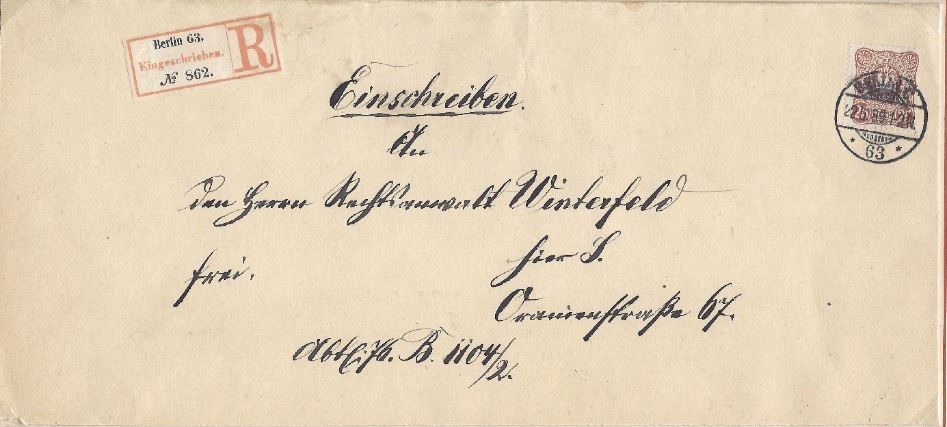 Berlin 63.
Eingeschrieben.
№ 862.
R
Einschreiben.
An
den Herrn Rechtsanwalt Winterfeld
hier S.
frei.
Oranienstraße 67.
B. 1104/2.
63